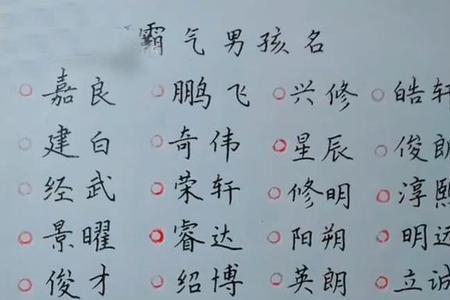 霸气男孩名
嘉良 鹏飞 兴修 皓轩
建白 奇伟 星辰 俊朗
经武 荣轩 修明 淳熙
景曜 睿达 阳朔 明远
俊才 绍博 英朗 立诚